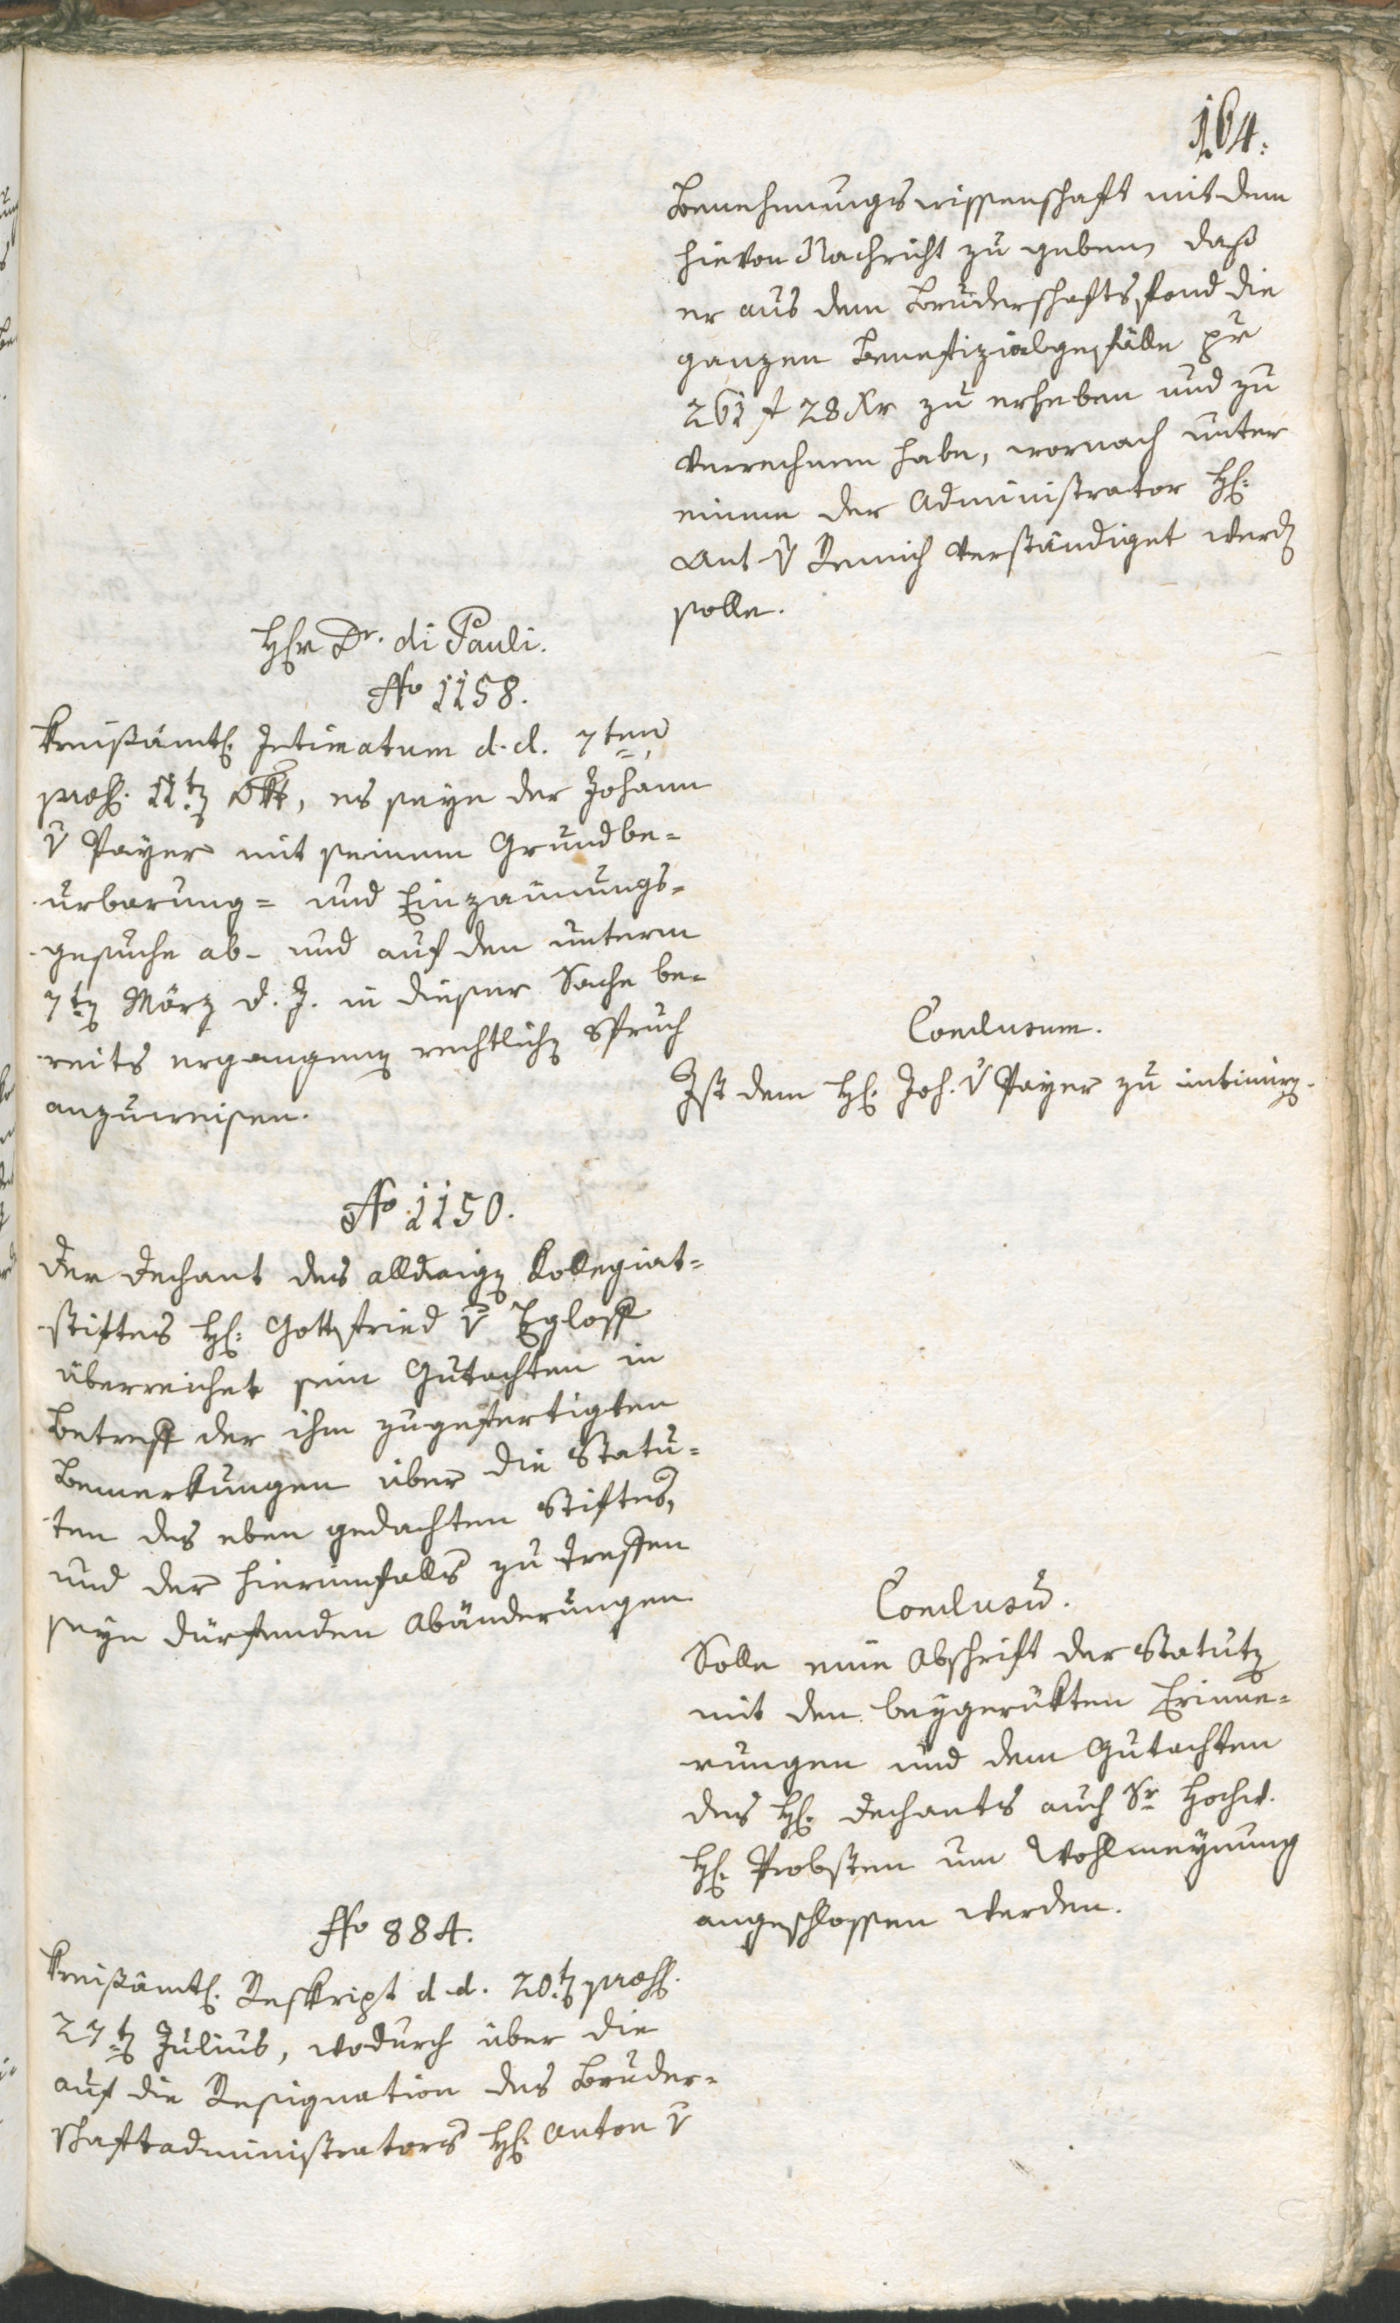 164.
Benehmungswissenschaft mit dem
hievon Nachricht zu geben, daß
er aus dem Bruderschaftsfond die
ganzen Benefizialgefälle pr
261 f 28 Xr zu erheben und zu
verrechnen habe, wornach unter
einem der Administrator H:
Ant. v Remich verständiget werdn
solle.
Hr Dr. di Pauli.
No 1158.
Kreißämtl. Intimatum d. d. 7ten
præs. 11tn Okt, es seye der Johann
v Payer mit seinem Grundbe=
urbarung= und Einzäunungs=
gesuche ab- und auf den unterm
7tn März d. J. in dieser Sache be=
reits ergangenen rechtlichn Spruch
anzuweisen.
Conclusum.
Ist dem H. Joh. v Payer zu intimirn.
No 1150.
Der Dechant des alldaign Kollegiat=
stiftes H: Gottfried v Egloff
überreichet sein Gutachten in
Betreff der ihm zugefertigten
Bemerkungen über die Statu=
ten des eben gedachten Stiftes,
und der hierinfalls zu treffen
seyn dürfenden Abänderungen
Conclusu̅.
Solle eine Abschrift der Statutn
mit den beygerükten Erinne=
rungen und dem Gutachten
des H. Dechants auch Sr Hochw.
H. Probsten um Wohlmeynung
angeschlossen werden.
No 884.
Kreißämtl. Reskript d. d. 20tn præs.
27tn Julius, wodurch über die
auf die Resignation des Bruder=
schaftadministrators H: Anton v